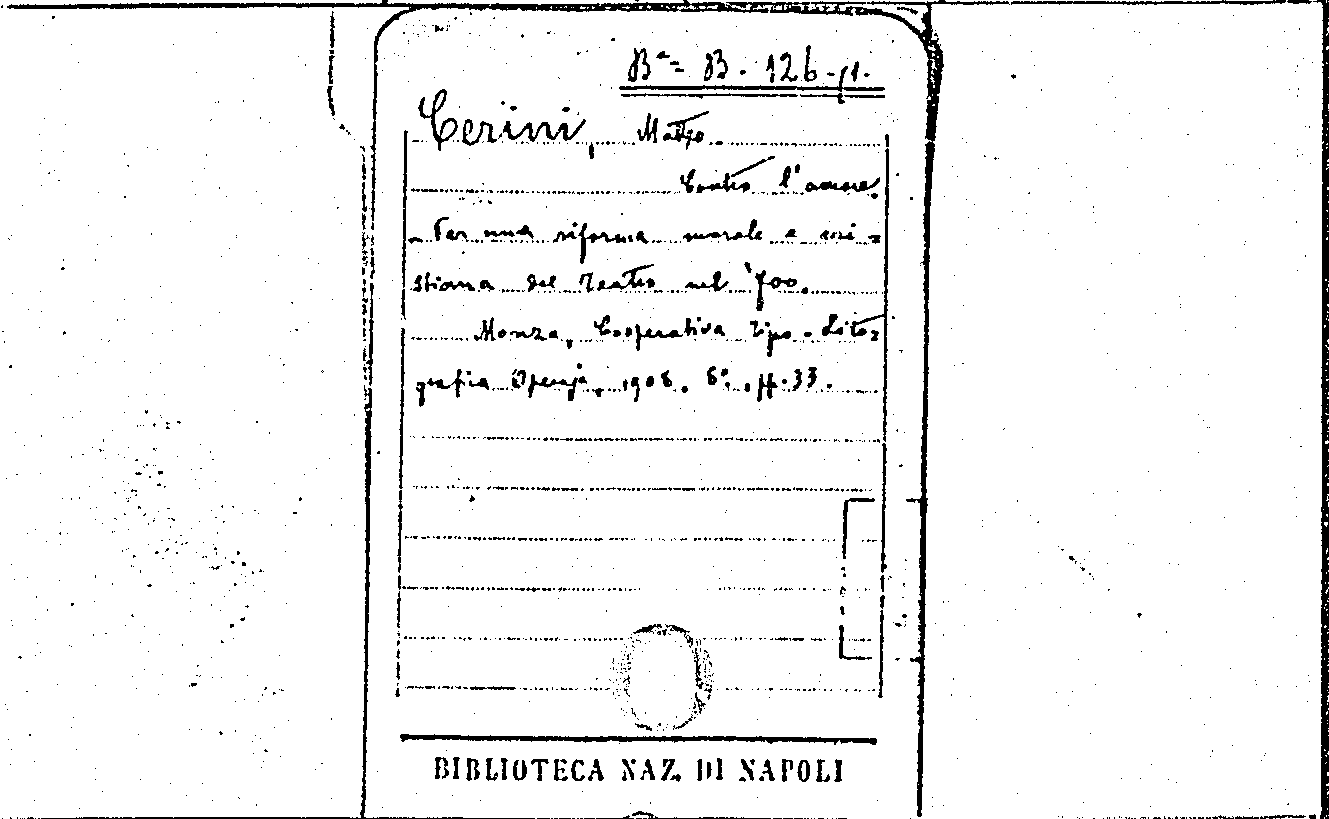 Bª = B. 126. 11.
Cerini, Matteo.
Contro l'amore.
- Per una riforma morale e cri=
stiana del Teatro nel '700.
Monza, Cooperativa Tipo-Lito=
grafia Operaja, 1908. 8º. pp. 33.
BIBLIOTECA NAZ. DI NAPOLI